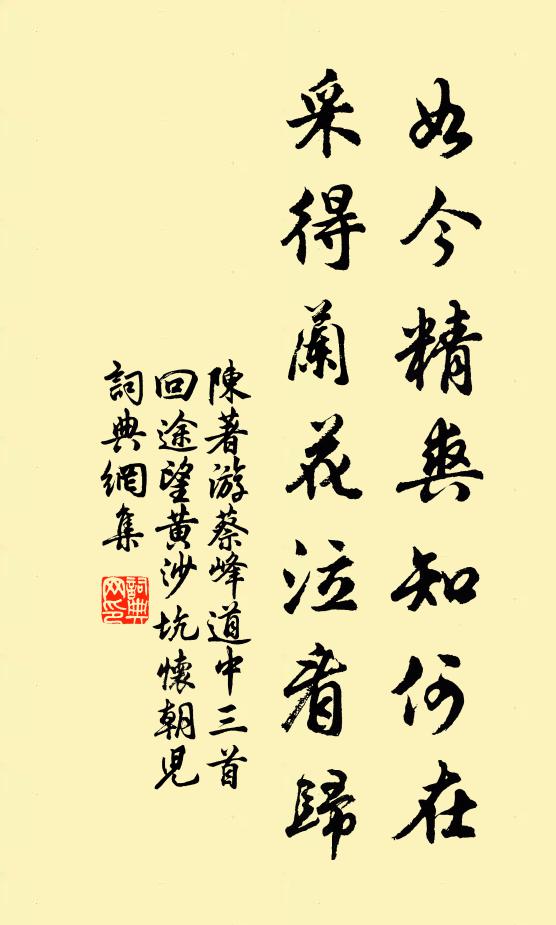 如今精爽知何在
采得蘭花泣看歸
陳著游蔡峰道中三首
回途望黃沙坑懷朝児
詞典網集
詞典網印